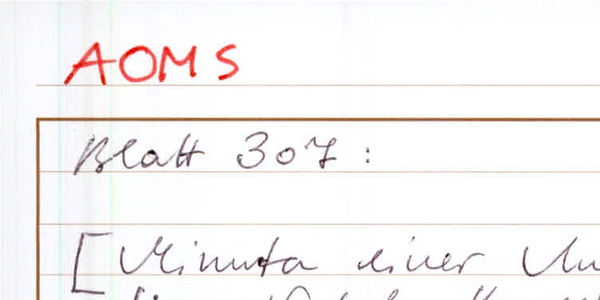 AOMS
Blatt 307 :
[Minuta einer